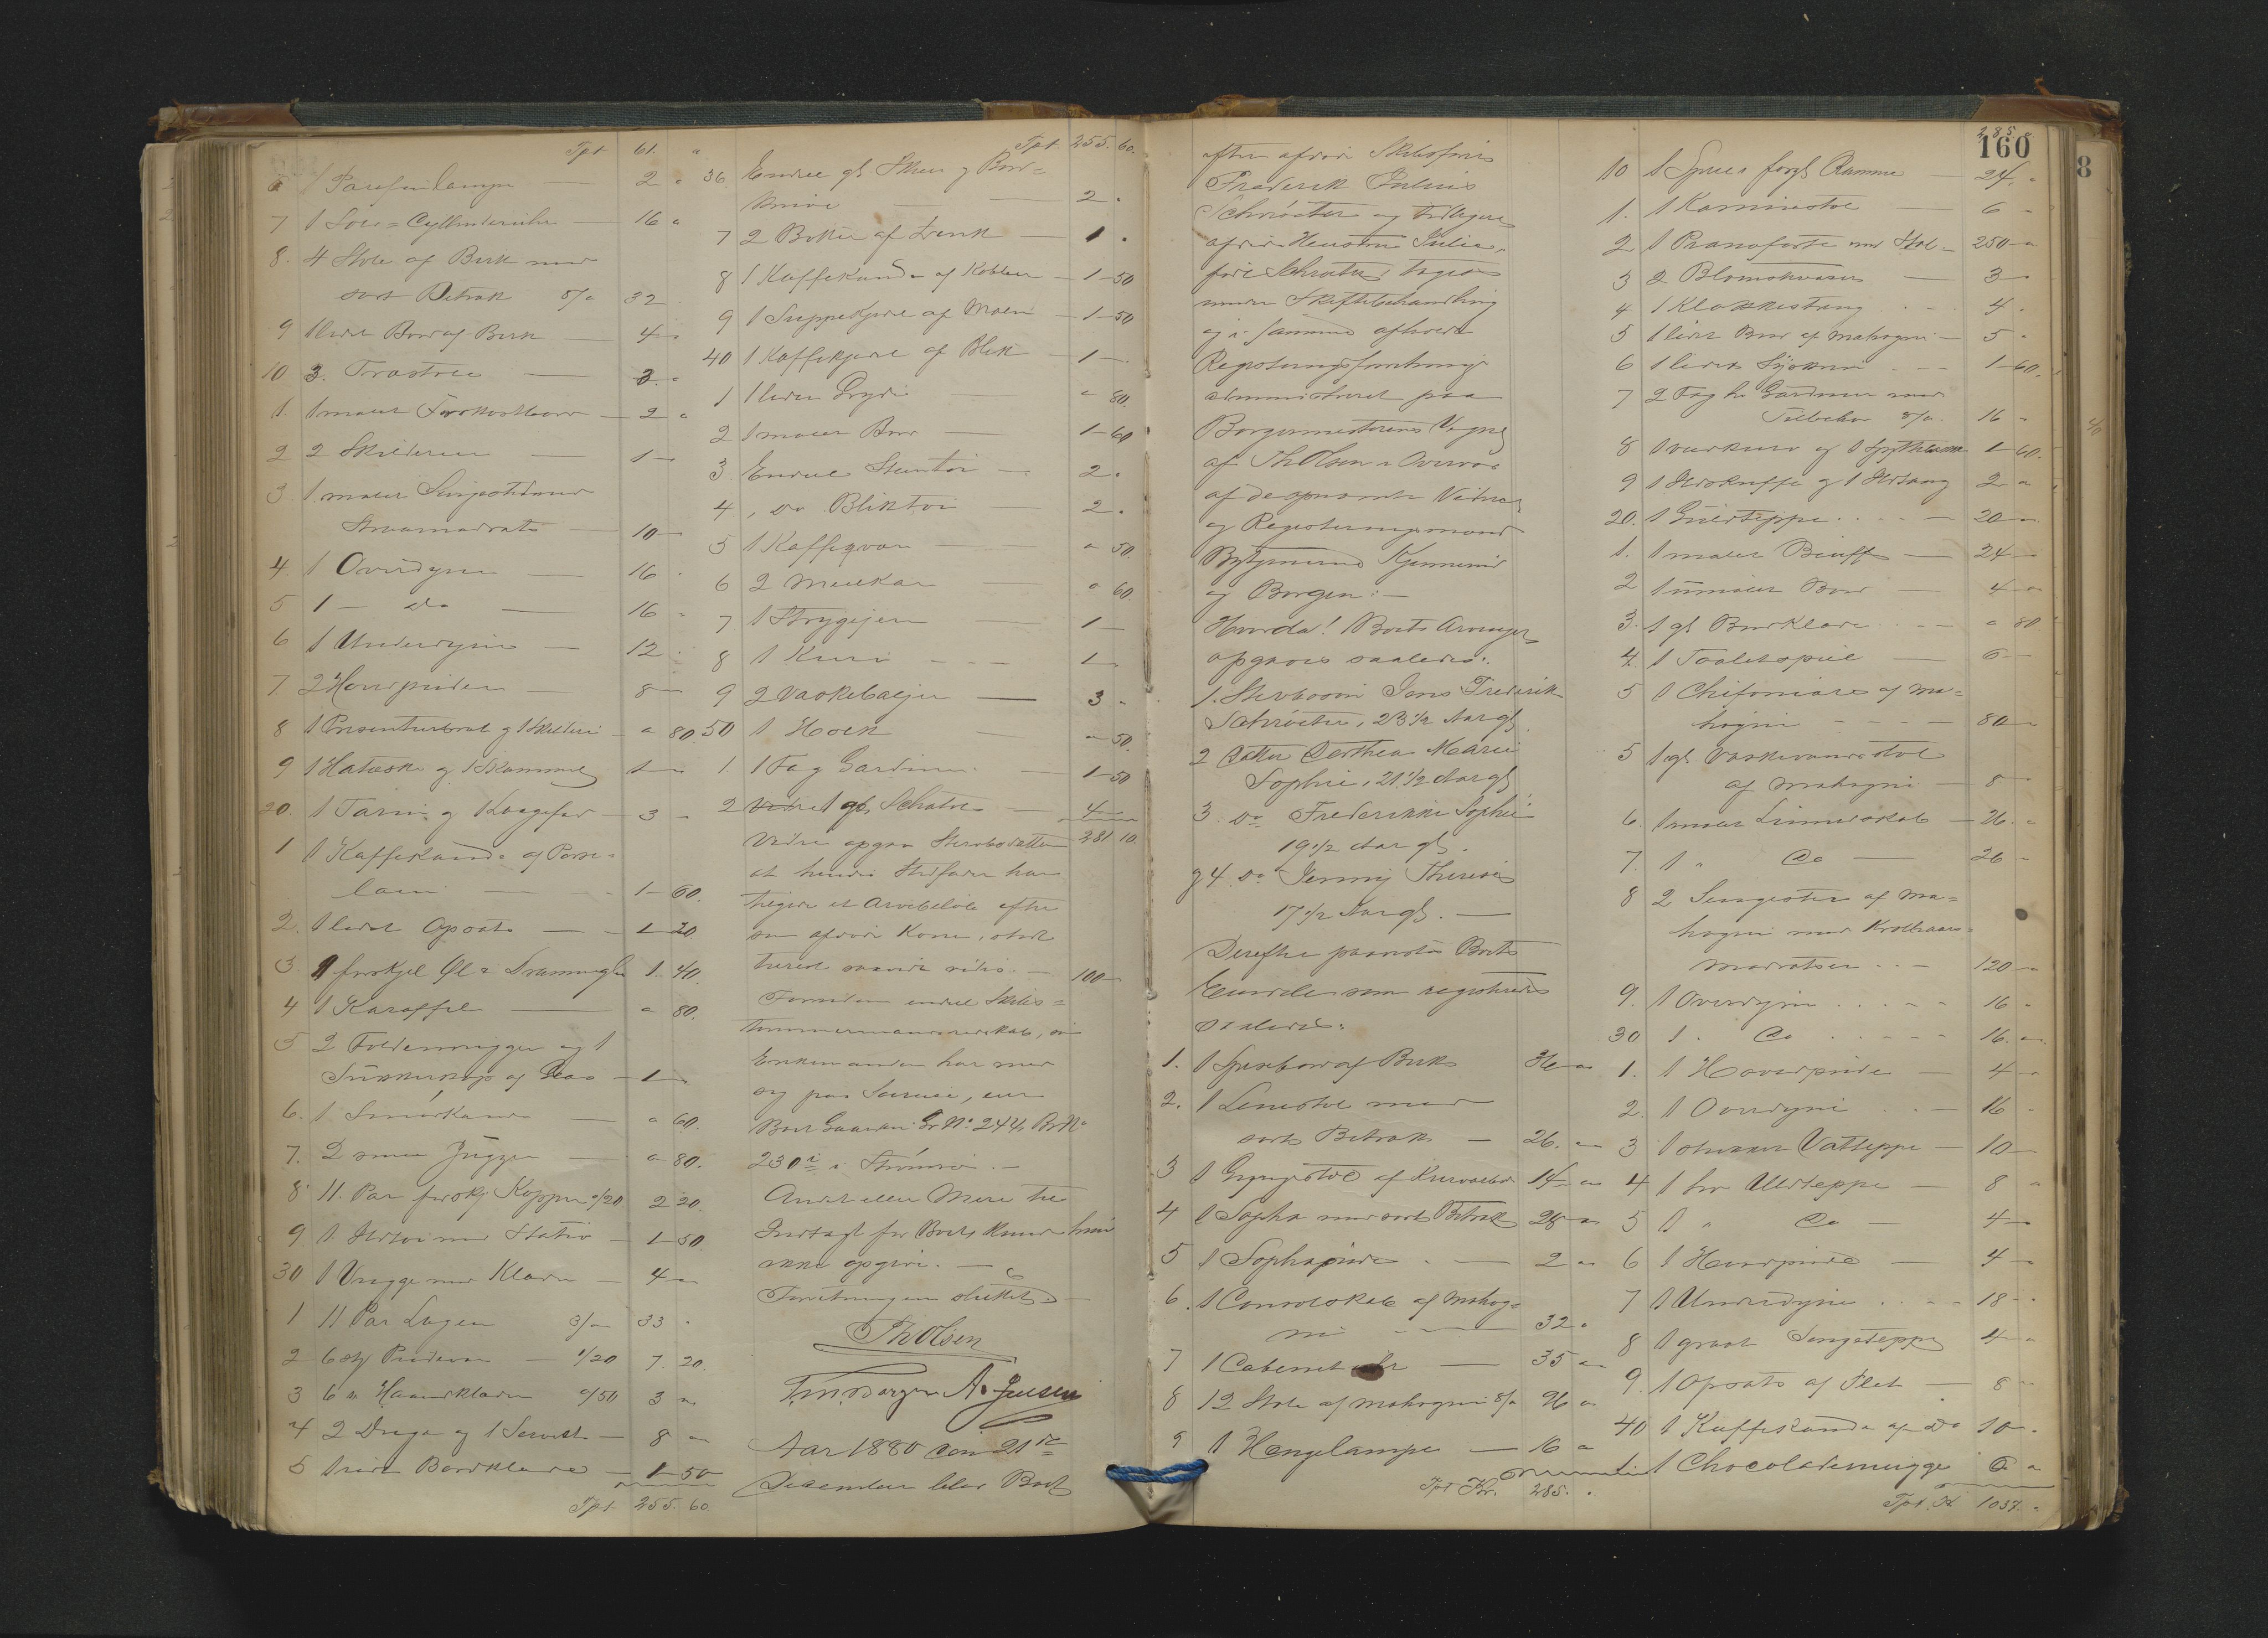 Tpt 61. "
6 1 Parafinlampe — 2 "
7 1 Sølv-Cyllinderuhr — 16 "
8. 4 Stole af Birk med
sort Betræk 8/" 32
9 1 lidet Bord af Birk — 4 "
10 3. Træstole — 3 "
1. 1 malet Frokostbord — 2 "
2 2 Skilderier — 1 "
3 1 malet Sengested med
Straamadrats 10 —
4 1 Overdyne — 16 "
5 1 — Do — 16 "
6 1 Underdyne — 12 "
7. 2 Hovedpuder — 8 —
8 1 Presenterbret og 1 Skilderi — " 80.
9 1 Hatæske og 1 Skammel 1 — "
20. 1 Tærin og Kagefad — 3 "
1 1 Kaffekande af Porse-
lain — 1 — 60.
2. 1 lidet Opsats — 1 — 20
3. 9 forskjel Øl & Drammeglas 1. 40.
4 1 Karaffel — " 80.
5 2 Flødemugger og 1
Sukkerkop af Glas — 1 "
6. 1 Smørkande — " 60.
7. 2 smaa Jugger — " 80.
8 11. Par forskj. Kopper "/20 2 20.
9 1 med Stativ — 1 — 50.
30 1 Vugge med Klæder — 4 "
1 11 Par Lagen 3/" 33 "
2 6 stk Pudevar — 1/20 7. 20.
3 6 " Haandklæder "/50 3 "
4 2 Duge og 1 Serviet — 8 "
5 1 Bordklæde — 1 — 50
Tpt. 255. 60.
Tpt 255. 60.
36 Endeel gl Skeer og Bord-
knive — 2 "
7 2 Bøtter af Zink — 1 "
8 1 Kaffekande af Kobber — 1 — 50
9 1 Suppekjedel af Malm — 1 — 50
40 1 Kaffekjedel af Blik — 1 —
1 1 liden Gryde — " 80.
2 1 malet Bord — 1 — 60
3. Endeel Stentøi — 2 "
4 " Do Bliktøi — 2 "
5 1 Kaffeqværn — " 50.
6 2 Melkekar — " 60
7 1 Strygejern — 1 —
8 1 Kurv — 1 —
9 2 Vaskebaljer — 3 "
50 1 — " 50.
1 1 Fag Gardiner — 1 — 50
2 1 gl. Schatol — 4 "
281 10.
Videre opgav Sterbodatteren
at hendes Stedfader har
tilgode et Arvebeløb efter
sin afdøde Kone,
100 —
Foruden endeel Skibs-
tømmermandsredskab, som
Enkemanden har med
sig paa Seiren, eier
Boet Gaarden Gr No. 244, Br No
230 i Strømsø. —
Andet eller Mere til
Indtægt for Boet kunde hun
ikke opgive. —
Forretningen sluttet —
Th Olsen
A. Jensen
Aar 1880 den 21de
December blev Boet
efter afdøde Skibsfører
Frederik Julius
Schrøeter og tidligere
afdøde Hustru Julie,
født Schrøter, taget
under Skiftebehandling
og i Samme afholdt
Registreringsforretning
administreret paa
Borgermesterens Vegne
af Th Olsen i Overvær
af de opnævnte Vidner
og Registreringsmænd
Bytjenerne Kjennerud
og Borgen: —
Hvorda! Boets Arvinger
opgaves saaledes:
1. Sterbosøn Jens Frederik
Schrøeter, 23 1/2 Aar gl.
2 Datter Dorthea Marie
Sophie, 21 1/2 Aar gl
3. Do Frederikke Sophie
19 1/2 Aar gl.
og 4. Do Jenny Therese
17 1/2 Aar gl. —
Derefter paaviste Boets
Eiendele som registreredes
saaledes:
1. 1 Spisebord af Birk 36 "
2. 1 Lænestol med
sort Betræk — 26. "
3 1 Gyngestol af 14 — "
4 1 Sopha med sort Betræk 28 "
5 1 Sophapude — 2 "
6. 1 Consolskab af Mahog-
ni — 32 "
7 1 Cabinet Uhr — 35 "
8 12 Stole af Mahogni 8/" 96 "
9 1 Hængelampe — 16 "
Tpt Kr. 285. "
285 "
160
10 1 Speil i forgl. Ramme 24. "
1. 1 Kaminstol — 6 "
2 1 Pianoforte med Stol — 250 "
3 2 Blomstervaser — 3 "
4 1 Klokkestræng — 4 "
5 1 lidet Bord af Mahogni — 5 "
6 1 lidet Syskrin — 1 — 60.
7 2 Fag hv. Gardiner med
Tilbehør 8/" 16 "
8 1 og 1 Spyttebakke 1 — 60.
9 1 Ildskuffe og 1 Ildtang 2 "
20. 1 Gulvteppe — 20 "
1. 1 malet Buffet — 24 —
2 1 umalet Bord — 4 "
3. 1 gl Bordklæde — " 80
4. 1 Toiletspeil — 6 —
5 1 Chifoniere af Ma-
hogni — 80 "
5 1 gl. Vaskevandstol
af Mahogni — 8 "
6. 1 malet Linnedskab — 26. "
7. 1 " Do — 26 "
8 2 Sengesteder af Ma-
hogni med Krølhaars-
madratser — 120 "
9. 1 Overdyne — 16 "
30 1 " Do — 16. "
1. 1 Hovedpude — 4 "
2. 1 Overdyne — 16 "
3 1 stukket Vatteppe — 10 —
4 1 hv Uldteppe — 8 "
5 1 " Do — 4 "
6 1 Hovedpude — 4 "
7 1 Underdyne — 18 "
8 1 graat Sengeteppe 4 "
9. 1 Opsats af Plet — 8 "
40 1 Kaffekande af Do 10 "
1. 1 Chocolademugge 6 "
Tpt. Kr 1037. "
8
40